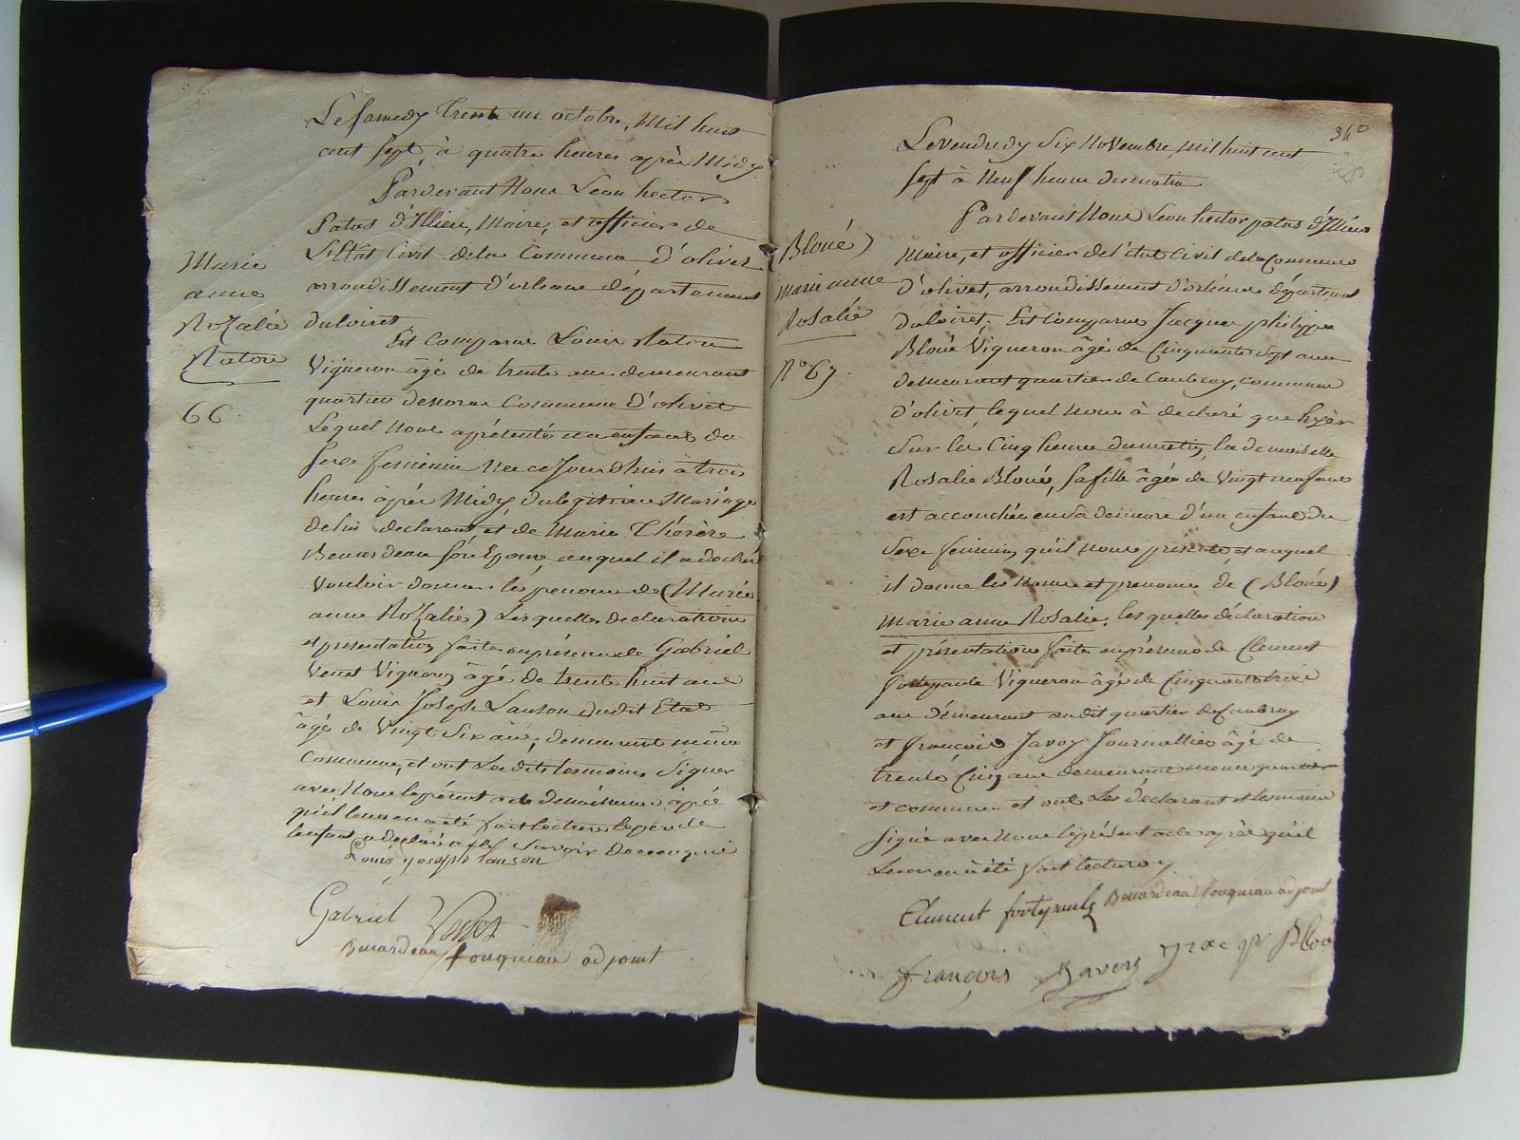 Le samedy trente un octobre, mil huit
cent sept, à quatre heures après Midy
Pardevant Nous Leon hector
Patas d'Illiers, Maire, et officier de
L'Etat Civil de la Commune d'olivet
arrondissement d'orleans département
du loiret
Est Comparu Louis
Vigneron âgé de trente ans demeurant
quartier de Commune D'olivet
Lequel Nous a présenté un enfant du
sexe feminin née ce Jourdhui à trois
heures après Midy du légitime Mariage
de lui declarant et de Marie Thérèze
Beaurdeau son Epouse, auquel il a declaré
Vouloir donner les prenoms de (Marie
anne Rozalie) Lesquelles declaration
et présentation faites en présence de Gabriel
Vigneron âgé de trente huit ans
et Louis Joseph Lanson dudit Etat
âgé de Vingt Six ans, demeurants même
Commune, et ont Les dits temoins Signer
avec Nous le présent acte de naissance après
qu'il leur en a été fait lecture le père de
l'enfant a declaré ne Savoir
Louis joseph lanson
Gabriel
Beaurdeau fouqueau adjoint
Marie
anne
Rozalie
66
340
Le vendredy Six Novembre mil huit cent
sept à Neuf heures du matin
Pardevant Nous Leon hector patas d'Illiers
Maire, et officier de l'état Civil de la Commune
D'olivet, arrondissement d'orléans département
du loiret. Est Comparu Jacques philippe
Bloué Vigneron âgé de Cinquante Sept ans
demeurant quartier de Caubray, commune
d'olivet lequel nous à declaré que hyèr
Sur les Cinq heures du matin, la demoiselle
Rosalie Bloué, sa fille âgée de Vingt neuf ans
est accouchée en sa demeure d'un enfant du
Sexe feminin qu'il nous présente et auquel
il donne les noms et prenoms de (Bloué)
marie anne Rosalie. lesquelles déclaration
et présentation faites en présence de Clement
Vigneron âgé de Cinquante trois
ans demeurant au dit quartier de Caubray
et françois Javoy Journallier âgé de
trente Cinq ans demeurant même quartier
et commune et ont Les déclarant et temoins
Signé avec Nous le présent acte après qu'il
Leur en a été fait lecture
Clement Beaurdeau fouqueau adjoint
françois Javoy Jac ph Bloué
Bloué)
marie anne
Rosalie
No 67